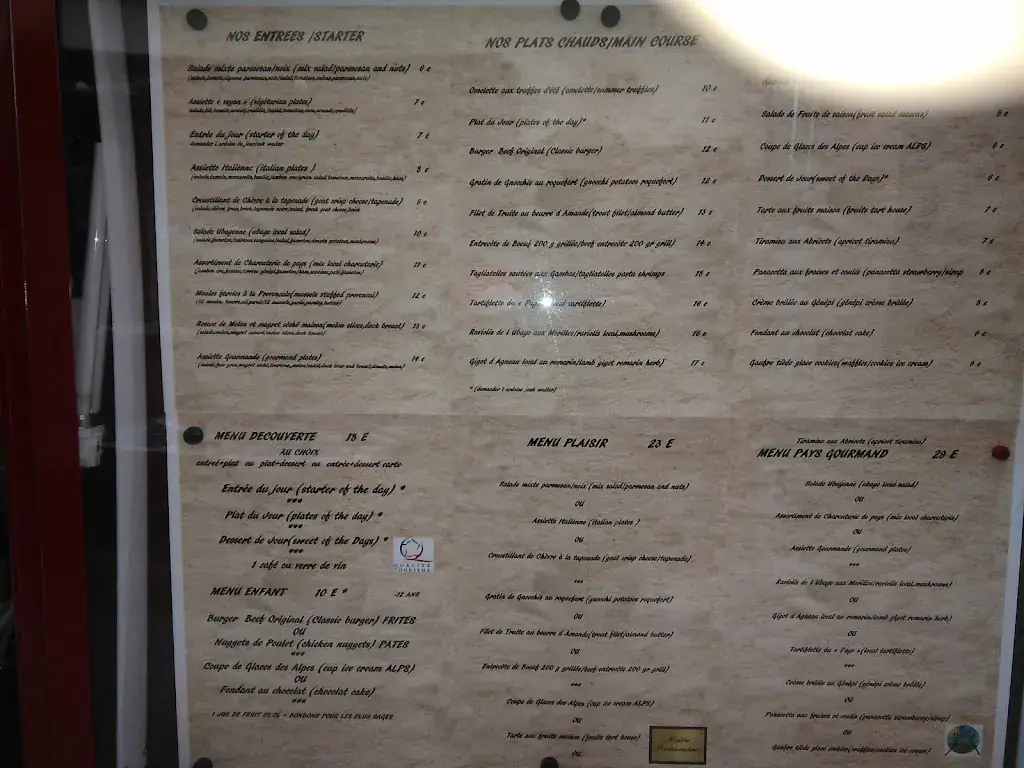 NOS ENTREES /STARTER
Salade mixte parmesan/noix (mix salad/parmesan and nuts) 6 €
Assiette « vegan » (végétarian plates) 7 €
Entrée du jour (starter of the day) 7 €
demander l ardoise du jour/ask waiter
Assiette Italienne (italian plates ) 8 €
Croustillant de Chèvre à la tapenade (goat crisp cheese/tapenade) 9 €
Salade Ubayenne (ubaye local salad) 10 €
Assortiment de Charcuterie de pays (mix local charcuterie) 11 €
Moules farcies à la Provencale(mussels stuffed provencal) 12 €
Rosace de Melon et magret séché maison(melon slices,duck breast) 13 €
Assiette Gourmande (gourmand plates) 14 €
NOS PLATS CHAUDS/MAIN COURSE
Omelette aux truffes d'été (omelette/summer truffles) 10 €
Plat du Jour (plates of the day)* 11 €
Burger Beef Original (Classic burger) 12 €
Gratin de Gnocchis au roquefort (gnocchi potatoes roquefort) 12 €
Filet de Truite au beurre d Amande(trout filet/almond butter) 13 €
Entrecôte de Boeuf 200 g grillée/beef entrecôte 200 gr grill) 14 €
Tagliatelles sautées aux Gambas/tagliatelles pasta shrimps 15 €
Tartiflette du « Pays tartiflette) 16 €
Raviolis de l Ubaye aux Morilles/raviolis local,mushrooms) 16 €
Gigot d Agneau local au romarin/lamb gigot romarin herb) 17 €
* (demander l ardoise /ask waiter)
Salade de Fruits de saison(fruit salad seasons) 5 €
Coupe de Glaces des Alpes (cup ice cream ALPS) 6 €
Dessert de Jour(sweet of the Days)* 6 €
Tarte aux fruits maison (fruits tart house) 7 €
Tiramisu aux Abricots (apricot tiramisu) 7 €
Panacotta aux fraises et coulis (panacotta strawberry/sirup 8 €
Crème brûlée au Génépi (génépi crème brûlée) 8 €
Fondant au chocolat (chocolat cake) 9 €
Gaufre tiède glace cookies(waffles/cookies ice cream) 9 €
MENU DECOUVERTE 18 E
AU CHOIX
entreé+plat ou plat+dessert ou entrée+dessert carte
Entrée du jour (starter of the day) *
***
Plat du Jour (plates of the day) *
***
Dessert de Jour(sweet of the Days) *
***
1 café ou verre de vin
QUALITÉ
TOURISME
MENU ENFANT 10 E * -12 ANS
Burger Beef Original (Classic burger) FRITES
OU
Nuggets de Poulet (chicken nuggets) PATES
***
Coupe de Glaces des Alpes (cup ice cream ALPS)
OU
Fondant au chocolat (chocolat cake)
***
1 JUS DE FRUIT 25 CL + BONBONS POUR LES PLUS SAGES
MENU PLAISIR 23 E
Salade mixte parmesan/noix (mix salad/parmesan and nuts)
OU
Assiette Italienne (italian plates )
OU
Croustillant de Chèvre à la tapenade (goat crisp cheese/tapenade)
***
Gratin de Gnocchis au roquefort (gnocchi potatoes roquefort)
OU
Filet de Truite au beurre d Amande(trout filet/almond butter)
OU
Entrecôte de Boeuf 200 g grillée/beef entrecôte 200 gr grill)
***
Coupe de Glaces des Alpes (cup ice cream ALPS)
OU
Tarte aux fruits maison (fruits tart house)
OU
Maître
Restaurateur
Tiramisu aux Abricots (apricot tiramisu)
MENU PAYS GOURMAND 29 E
Salade Ubayenne (ubaye local salad)
OU
Assortiment de Charcuterie de pays (mix local charcuterie)
OU
Assiette Gourmande (gourmand plates)
***
Raviolis de l Ubaye aux Morilles/raviolis local,mushrooms)
OU
Gigot d Agneau local au romarin/lamb gigot romarin herb)
OU
Tartiflette du « Pays »(local tartiflette)
***
Crème brûlée au Génépi (génépi crème brûlée)
OU
Panacotta aux fraises et coulis (panacotta strawberry/sirup)
OU
Gaufre tiède glace cookies(waffles/cookies ice cream)